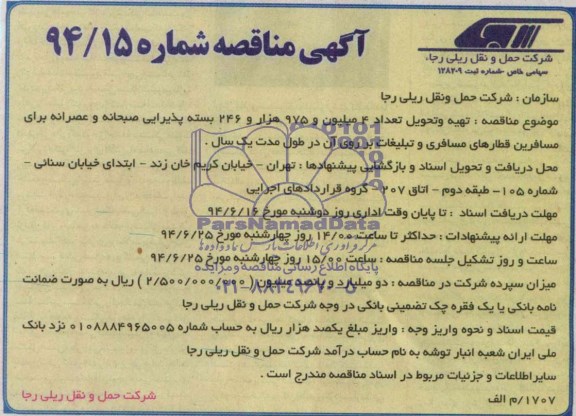 آگهی مناقصه شماره ۹۴/۱۵
شرکت حمل و نقل ریلی رجا،
سهامی خاص -شماره ثبت ۱۲۸۲۰۹
سازمان : شرکت حمل ونقل ریلی رجا
موضوع مناقصه : تهیه وتحویل تعداد ۴ میلیون و ۹۷۵ هزار و ۲۴۶ بسته پذیرایی صبحانه و عصرانه برای
مسافرین قطارهای مسافری و تبلیغات بر روی آن در طول مدت یک سال .
محل دریافت و تحویل اسناد و بازگشایی پیشنهادها : تهران - خیابان کریم خان زند - ابتدای خیابان سنائی -
شماره ۱۰۵- طبقه دوم - اتاق ۲۰۷- گروه قراردادهای اجرایی
مهلت دریافت اسناد : تا پایان وقت اداری روز دوشنبه مورخ ۹۴/۶/۱۶
مهلت ارائه پیشنهادات : حداکثر تا ساعت ۱۴/۰۰ روز چهارشنبه مورخ ۹۴/۶/۲۵
ساعت و روز تشکیل جلسه مناقصه : ساعت ۱۵/۰۰ روز چهارشنبه مورخ ۹۴/۶/۲۵
میزان سپرده شرکت در مناقصه : دو میلیارد و پانصد میلیون ( ۲/۵۰۰/۰۰۰/۰۰۰ ) ریال به صورت ضمانت
نامه بانکی یا یک فقره چک تضمینی بانکی در وجه شرکت حمل و نقل ریلی رجا
قیمت اسناد و نحوه واریز وجه : واریز مبلغ یکصد هزار ریال به حساب شماره ۰۱۰۸۸۸۴۹۶۵۰۰۵ نزد بانک
ملی ایران شعبه انبار توشه به نام حساب درآمد شرکت حمل و نقل ریلی رجا
سایر اطلاعات و جزئیات مربوط در اسناد مناقصه مندرج است .
۱۷۰۷/م الف
شرکت حمل و نقل ریلی رجا
ParsNamadData
پایگاه اطلاع رسانی مناقصه و مزایده